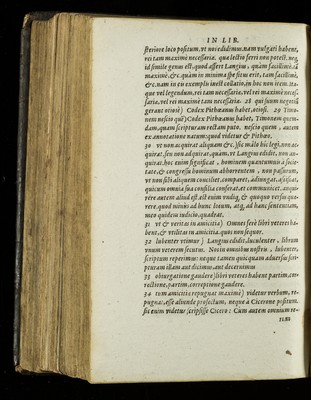 IN LIB.
steriore loco positum, vt nos edidimus. nam vulgati habent,
rei tam maximè necessariæ. quæ lectio ferri non potest. neq,
id simile genus est, quod affert Langius, quàm facillimè, &
maximè, &c. quàm in minima spe situ erit, tam facillimè,
&c. nam in eu exemplis inest collatio, in hoc non item. ita-
que vel legendum, rei tam necessariæ, vel rei maximè neces-
sariæ, vel rei maximè tam necessariæ. 28 qui suum negotiũ
gerant otiosi) Codex Pithœanus habet, otiosi. 29 Timo-
nem nescio què) Codex Pithœanus habet, Timonem quem-
dam, quam scripturam rectam puto. nescio quem, autem
ex annotatione natum: quod videtur & Pithœo.
30 vt non acquirat aliquam &c.) sic malo hic legi, non ac-
quirat, seu non adquirat, quàm, vt Langius edidit, non an-
quirat. hoc enim significat, hominem quantumuis à socie-
tate, & congressu hominum abhorrentem, non passurum,
vt non sibi aliquem conciliet, comparet, adiungat, asciscat,
quicum omnia sua consilia conferat, at communicet. anqui-
rere autem aliud est. est enim vndiq, & quoque versus quæ-
rere. quod minus ad hunc locum, atq, ad hanc sententiam,
meo quidem iudicio, quadrat.
31 vt & veritas in amicitia) Omnes ferè libri veteres ha-
bent, & vtilitas in amicitia. quos non sequor.
32 lubenter vtimur) Langius edidit, luculenter. librum
vnum veterem secutus. Nos in omnibus nostris, lubenter,
scriptum reperimus: neque tamen quicquam aduersus scri-
pturam illam aut dicimus, aut decernimus
33 obiurgatione gaudere) libri veteres habent partim, cor-
rectione, partim, correptione gaudere.
34 tum amicitiis repugnat maximè) videtur verbum, re-
pugnat, esse aliunde profectum, neque à Cicerone positum.
sic enim videtur scripsisse Cicero: Cum autem omnium re-
rum